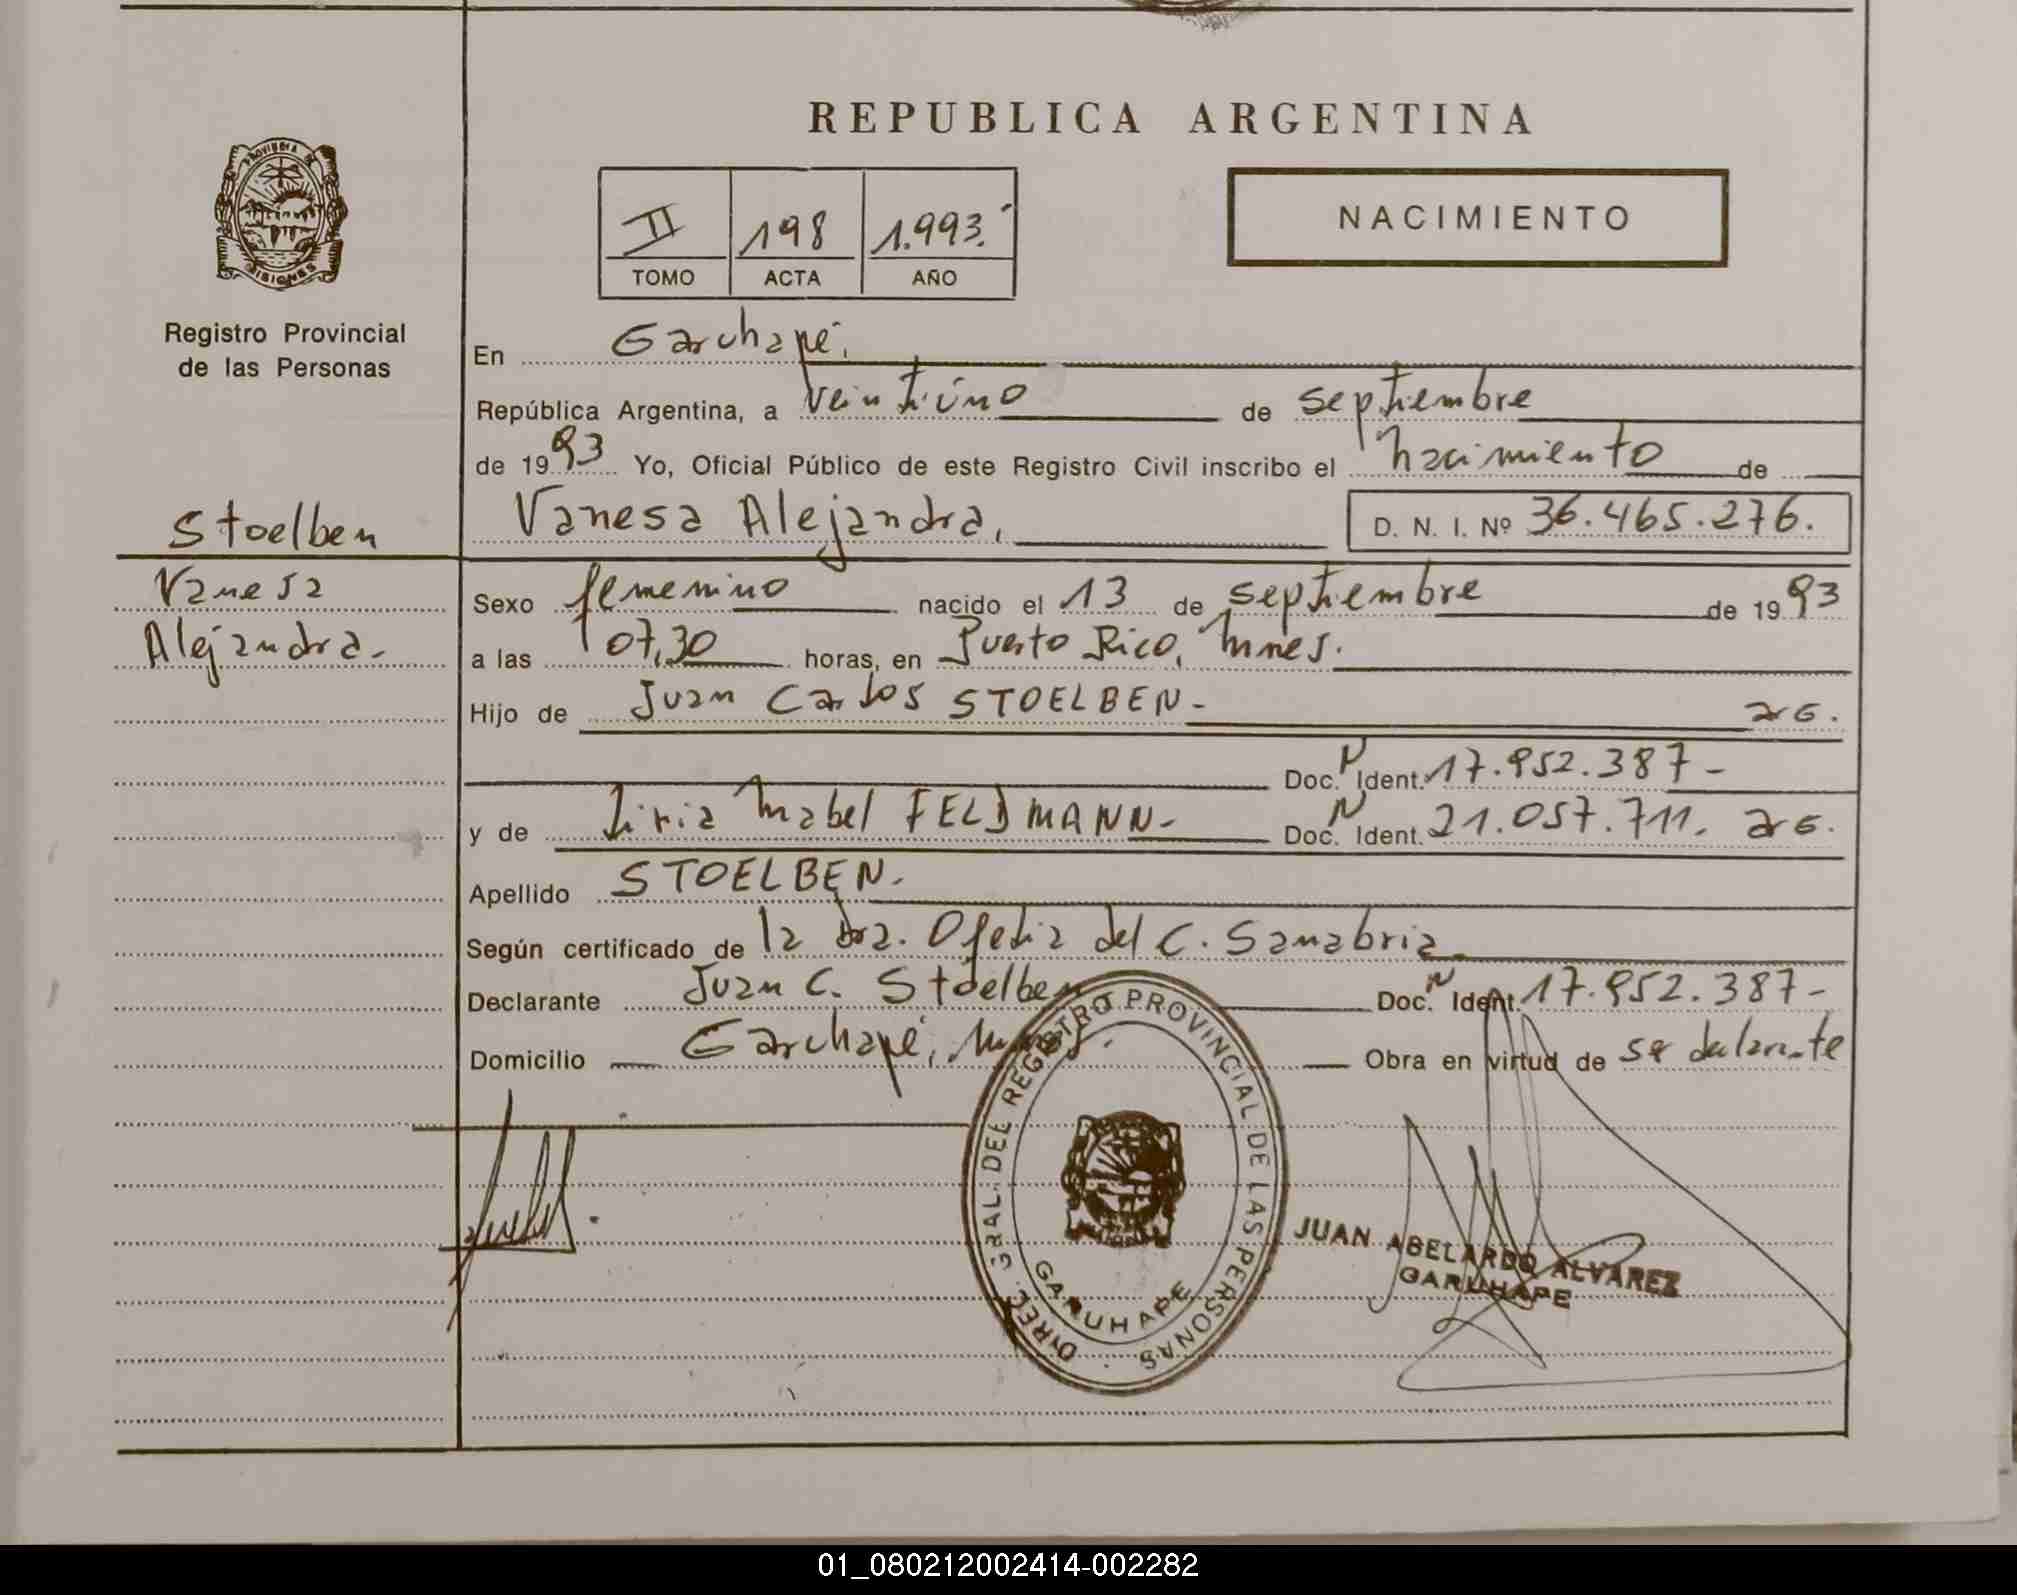 REPUBLICA ARGENTINA
PROVINCIA DE MISIONES
Registro Provincial
de las Personas
II 198 1.993.
TOMO ACTA AÑO
NACIMIENTO
En Garuhapé.
República Argentina, a veintiúno de septiembre
de 1993 Yo, Oficial Público de este Registro Civil inscribo el nacimiento de
Stoelben
Vanesa Alejandra, D. N. I. Nº 36.465.276.
Vanesa
Alejandra.-
Sexo femenino nacido el 13 de septiembre de 1993
a las 07,30 horas, en Puerto Rico, Mnes.
Hijo de Juan Carlos STOELBEN- arg.
Doc. N Ident. 17.952.387-
y de Liria Mabel FELDMANN- Doc. N Ident. 21.057.711. arg.
Apellido STOELBEN.
Según certificado de la dra. Ofelia del C. Sanabria
Declarante Juan C. Stoelben Doc. N Ident. 17.952.387-
Domicilio Garuhapé, Mnes. Obra en virtud de ser declarante
DIREC. GRAL. DEL REGISTRO PROVINCIAL DE LAS PERSONAS
GARUHAPE
JUAN ABELARDO ALVAREZ
GARUHAPE
01_080212002414-002282